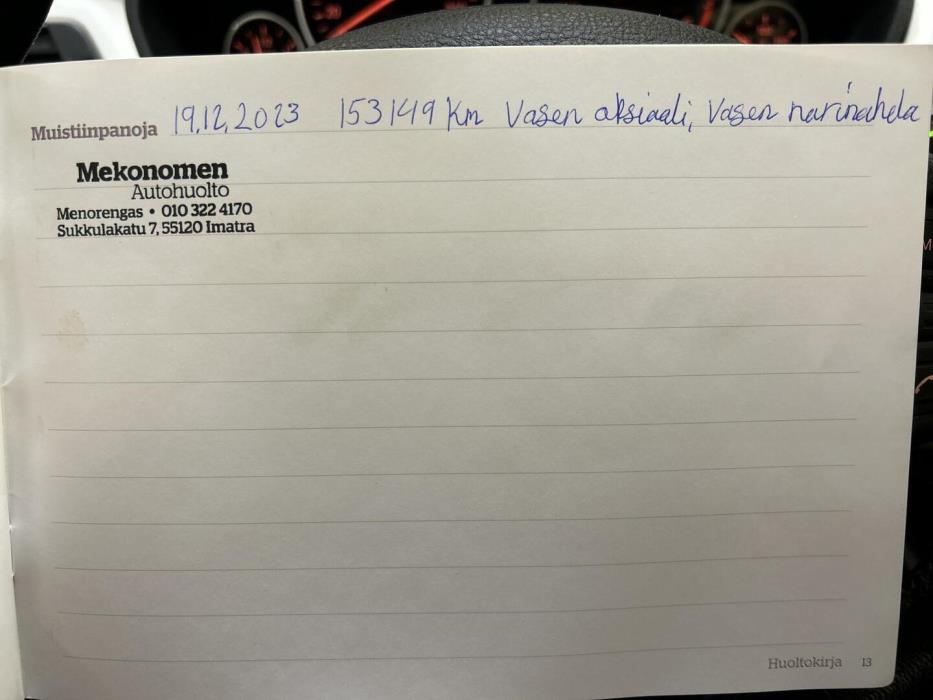 Muistiinpanoja 19.12.2023 153149 Km Vasen aksiaali, Vasen narinahela
Mekonomen
Autohuolto
Menorengas • 010 322 4170
Sukkulakatu 7, 55120 Imatra
Huoltokirja 13